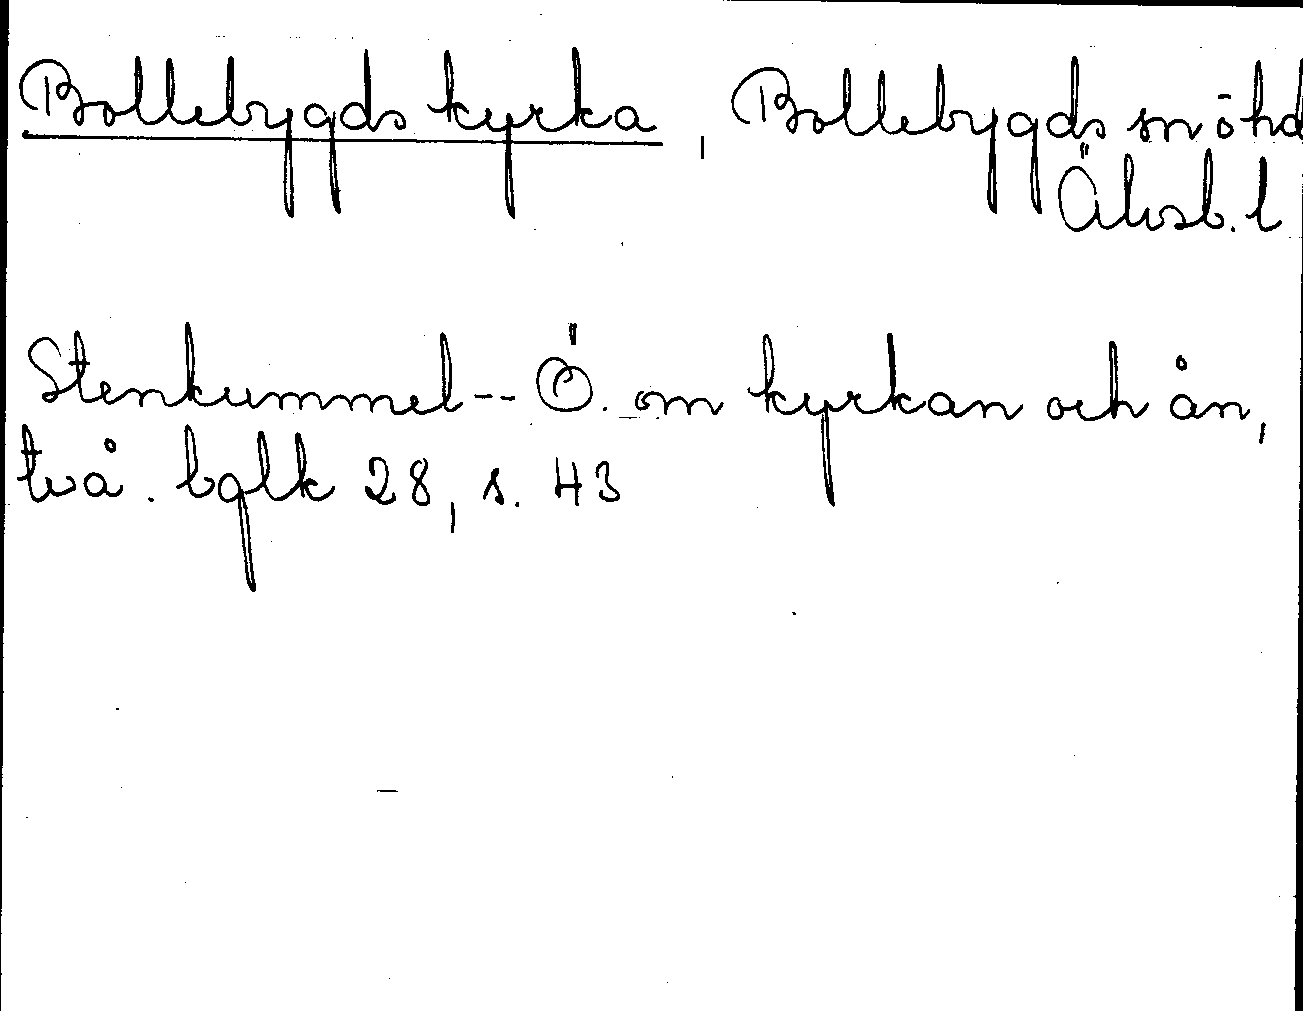 Bollebygds kyrka, Bollebygds sn ö hd
Älvsb. l
Stenkummel -- Ö. om kyrkan och ån,
två. bglk 28, s. 43